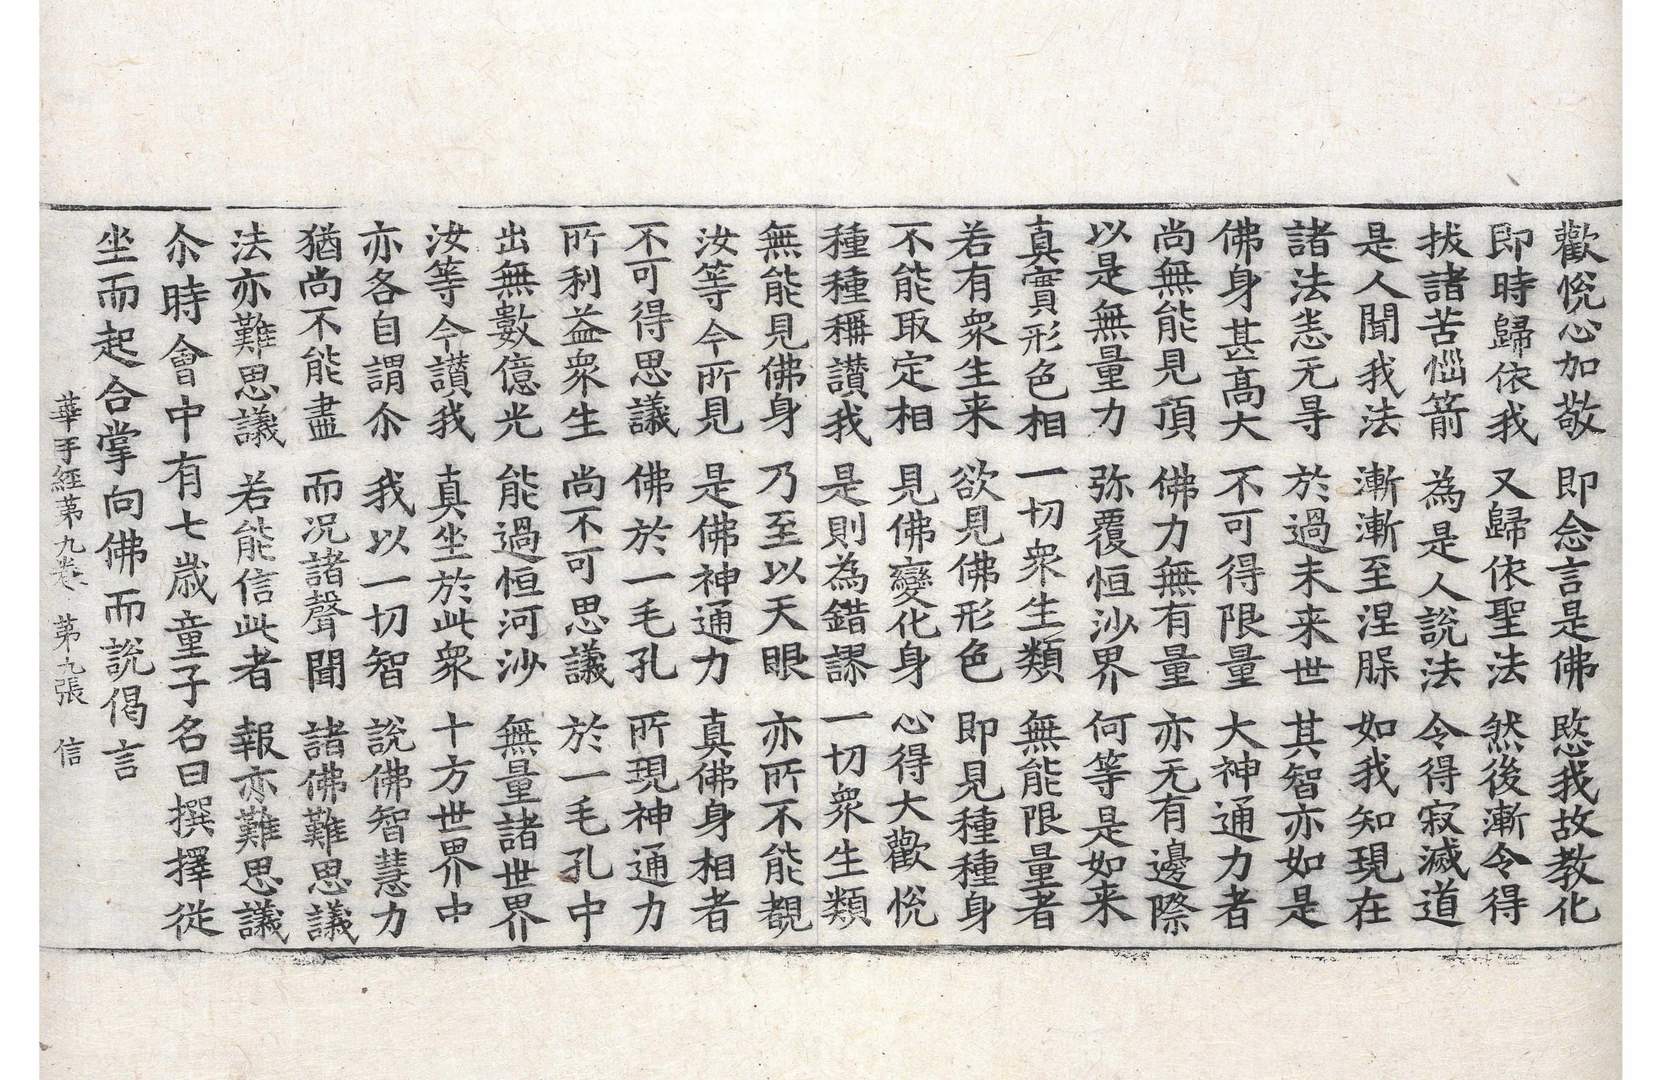 歡悅心加敬 即念言是佛 愍我故教化
即時歸依我 又歸依聖法 然後漸令得
拔諸苦惱箭 為是人說法 令得寂滅道
是人聞我法 漸漸至涅槃 如我知現在
諸法悉无㝵 於過未来世 其智亦如是
佛身甚高大 不可得限量 大神通力者
尚無能見頂 佛力無有量 亦无有邊際
以是無量力 弥覆恒沙界 何等是如来
真實形色相 一切衆生類 無能限量者
若有衆生来 欲見佛形色 即見種種身
不能取定相 見佛變化身 心得大歡悅
種種稱讃我 是則為錯謬 一切衆生類
無能見佛身 乃至以天眼 亦所不能覩
汝等今所見 是佛神通力 真佛身相者
不可得思議 佛於一毛孔 所現神通力
所利益衆生 尚不可思議 於一毛孔中
出無數億光 能過恒河沙 無量諸世界
汝等今讃我 真坐於此衆 十方世界中
亦各自謂尒 我以一切智 說佛智慧力
猶尚不能盡 而况諸聲聞 諸佛難思議
法亦難思議 若能信此者 報亦難思議
尒時會中有七歲童子名曰撰擇從
坐而起合掌向佛而說偈言
華手經第九卷 第九張 信